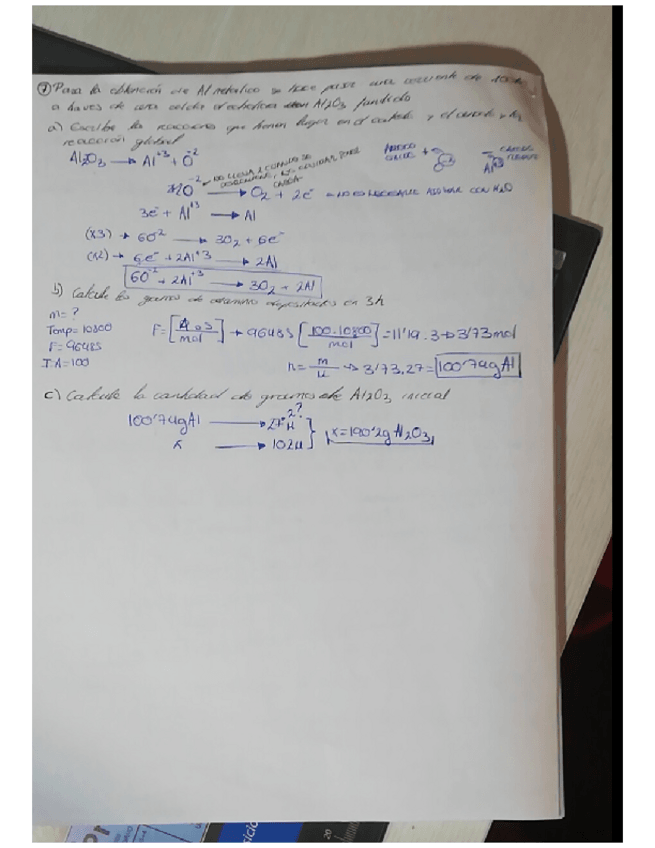 ⑦ Para la obtención de Al metálico se hace pasar una corriente de 100A
a través de una celda electrolítica Al₂O₃ fundido
a) Escribe las reacciones que tienen lugar en el cátodo y el ánodo y la
reacción global
Al₂O₃ → Al⁺³ + O⁻²
O⁻² → O₂ + 2e⁻ NO ES NECESARIO AJUSTAR CON H₂O
3e⁻ + Al⁺³ → Al
(x3) → 6O⁻² → 3O₂ + 6e⁻
(x2) → 6e⁻ + 2Al⁺³ → 2Al
6O⁻² + 2Al⁺³ → 3O₂ + 2Al
b) Calcule los gramos de aluminio depositados en 3h
m = ?
Temp = 10800
F = 96485
I·A = 100
F = [A·s / mol] → 96485 [100·10800 / mol] = 11'19 : 3 → 3'73 mol
n = m/M → 3'73.27 = 100'74g Al
c) Calcule la cantidad de gramos de Al₂O₃ inicial
100'74g Al → 27·2
x → 102u
x = 190'2g Al₂O₃